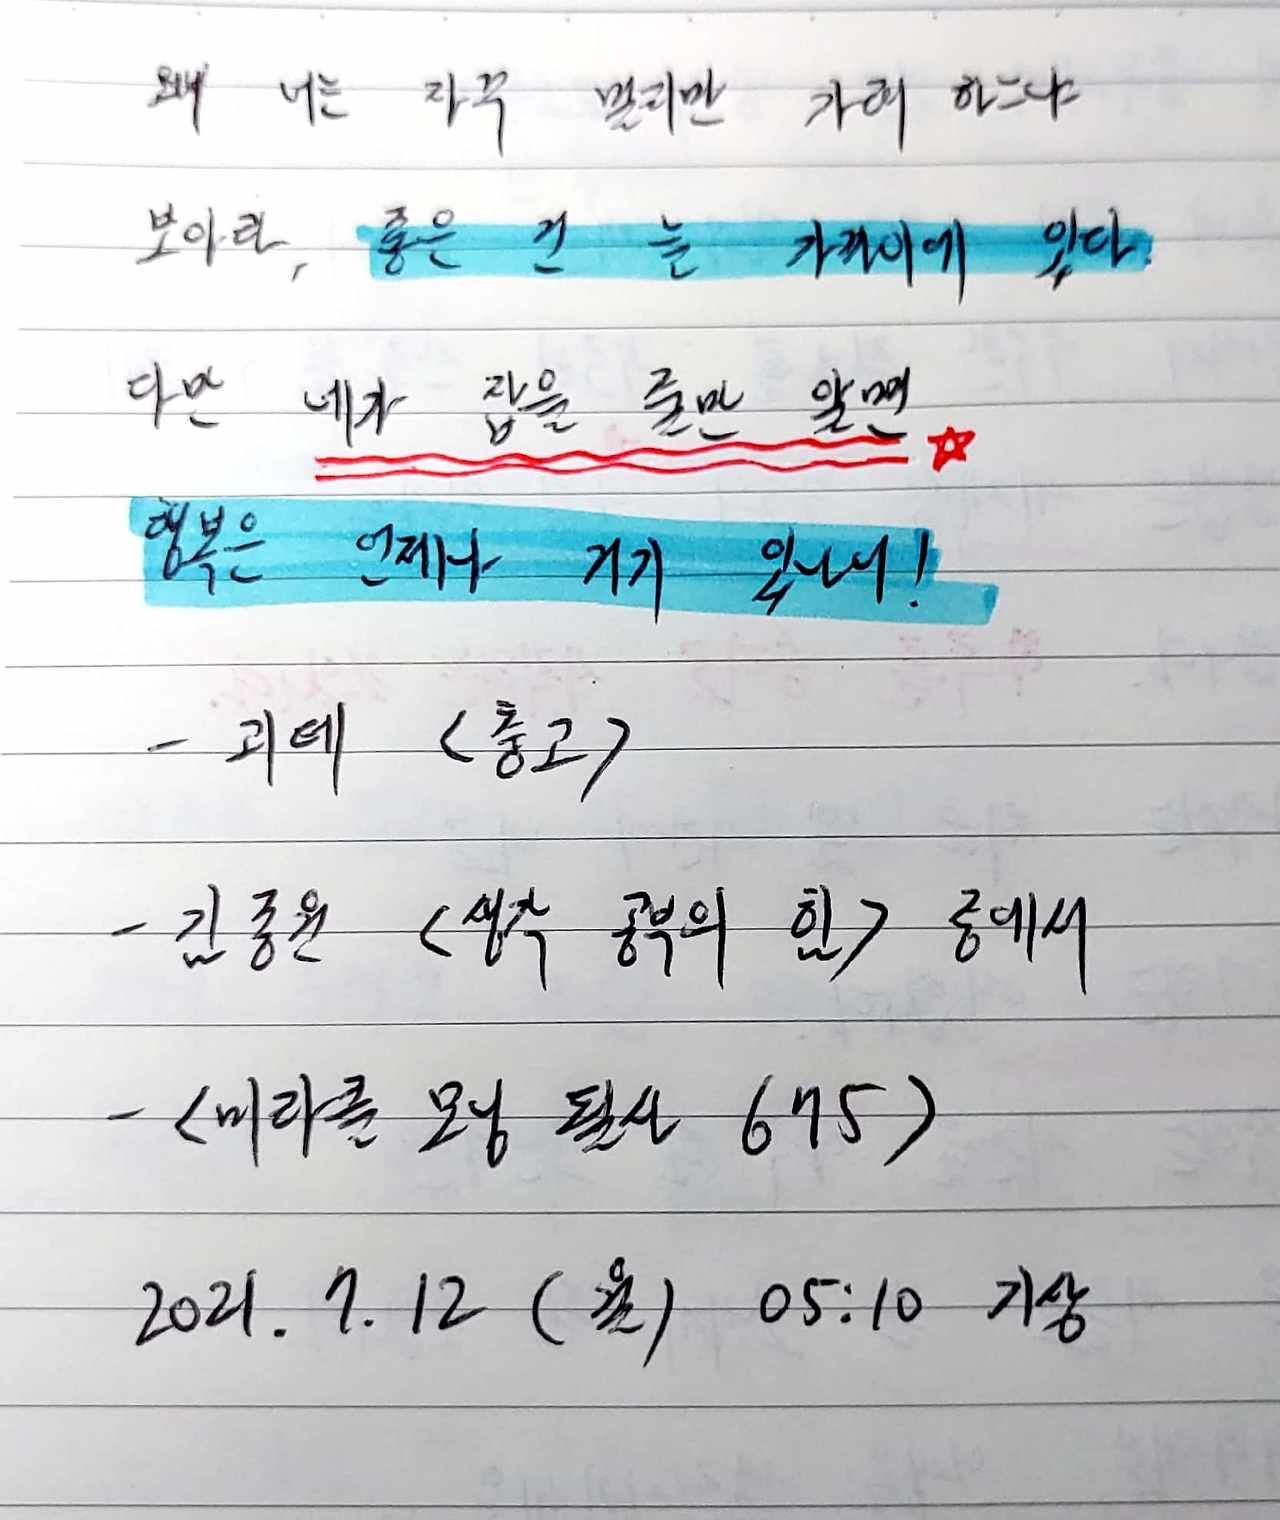 왜 너는 자꾸 멀리만 가려 하느냐
보아라, 좋은 건 늘 가까이에 있다.
다만 네가 잡을 줄만 알면
행복은 언제나 거기 있나니!
- 괴테 <충고>
- 김종원 <생각 공부의 힘> 중에서
- <미라클 모닝 필사 675>
2021. 7. 12 (월) 05:10 기상